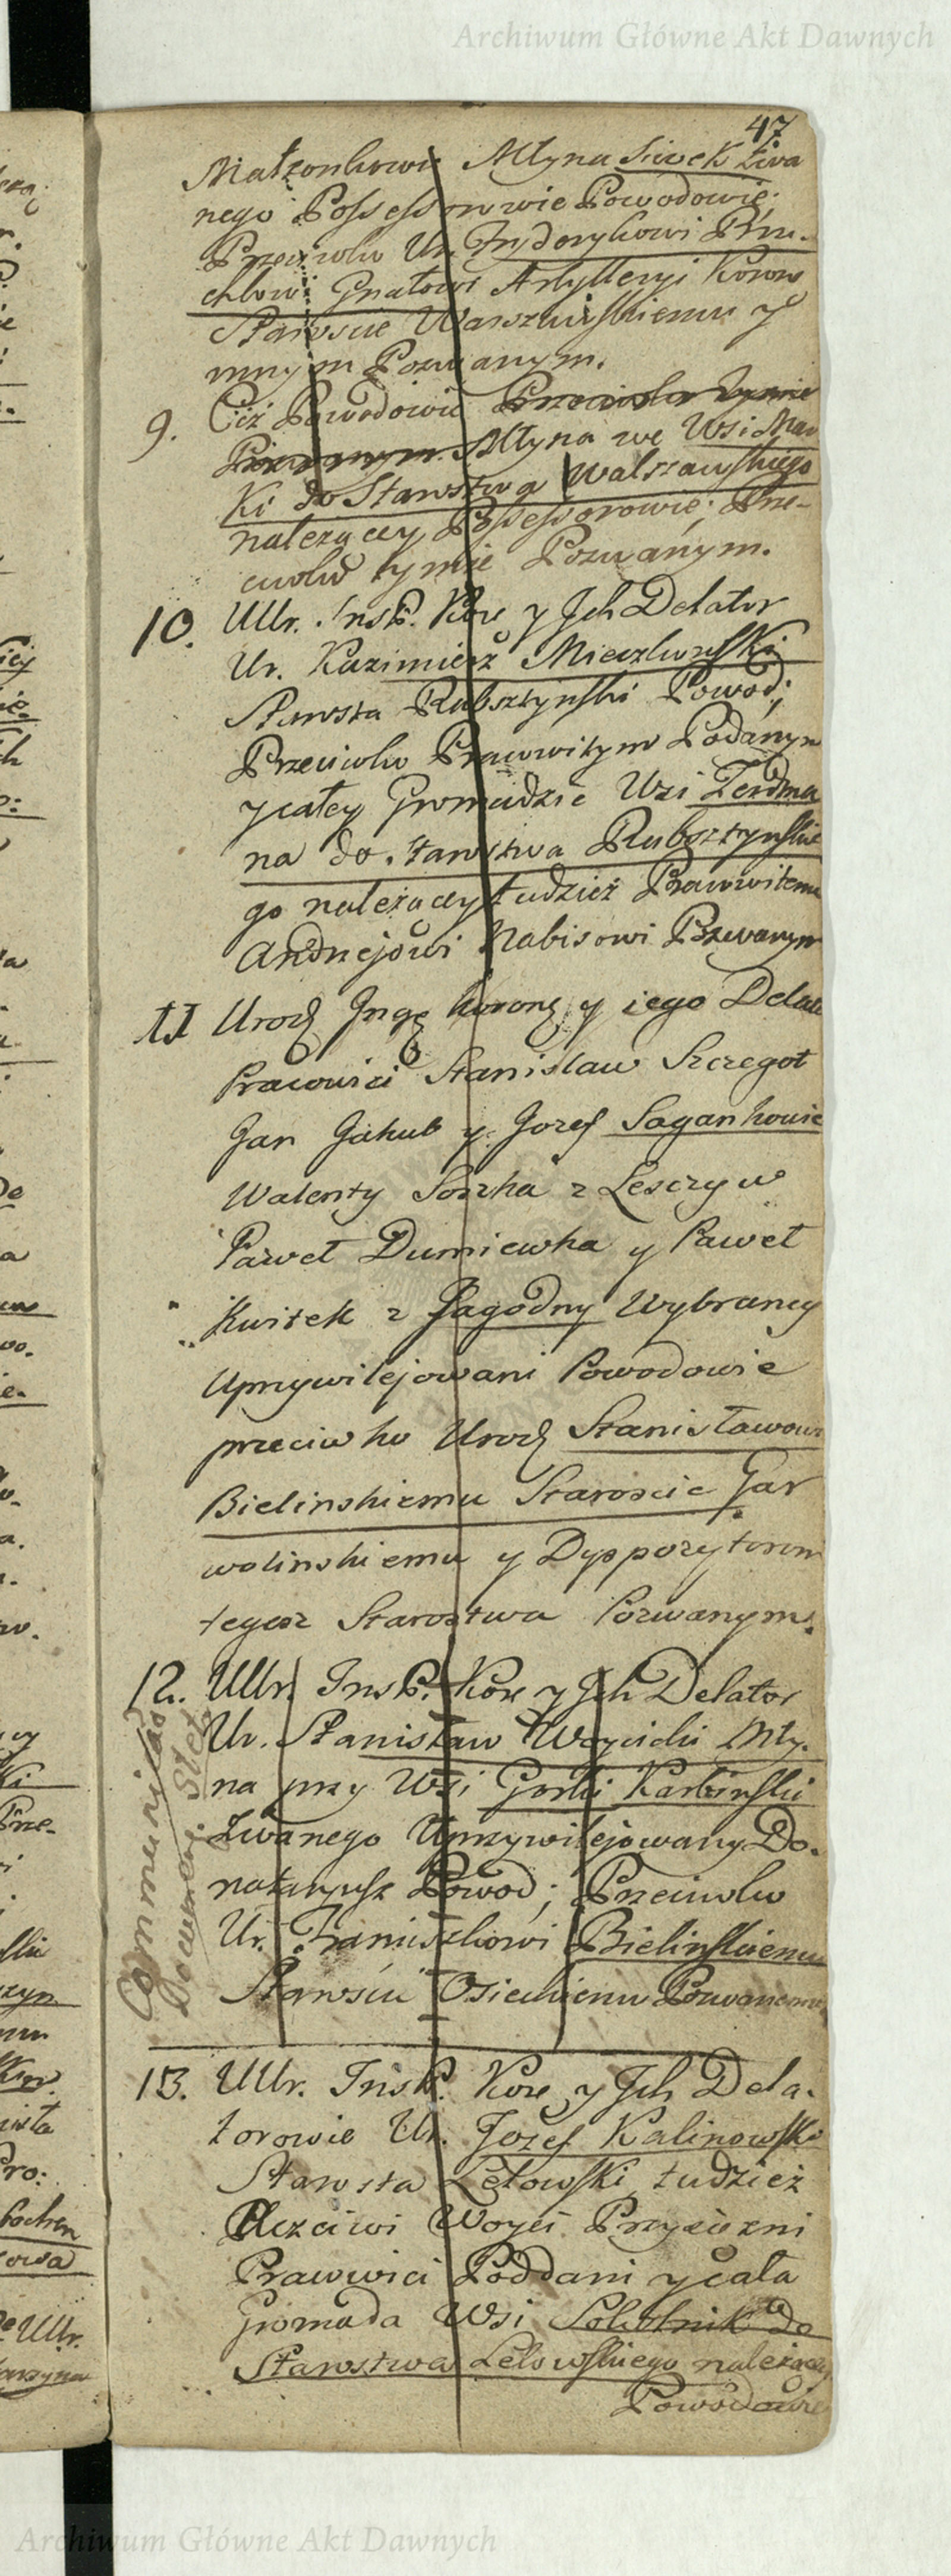 Archiwum Główne Akt Dawnych
47
Małżonkowi Młyna Siwek zwa
nego Possessorowie Powodowie;
Przeciwko Ur. Frydorykowi Brü-
chlowi Gnałowi Artylleryi Koron
Staroście Warszawskiemu y
innym Pozwanym.
9. Ciż Powodowie Przeciwko tymże
Pozwanym. Młyna we Wsi Mar
ki do Starostwa Warszawskiego
należącey Possessorowie; Prze-
ciwko tymże Pozwanym.
10. UUr. Inst. Kor y Jch Delator
Ur. Kazimierz Mieczkowski
Starosta Rabsztynski Powod;
Przeciwko Pracowitym Podanym
y całey Gromadzie Wsi
na do Starostwa Rabsztynskie
go należącey tudzież Pracowitemu
Andrzejowi Nabisowi Pozwanym
11 Urodz Jngę Koronę y iego Delato
Pracowici Stanislaw Szczegot
Jan Jakub y Jozef Saganhowie
Walenty Soszka z Lesczyw
Paweł Dumiewka y Paweł
Kwitek z Jagodny Wybrancy
Uprzywilejowani Powodowie
przeciwko Urodz Stanisławowi
Bielinskiemu Staroscie Gar
wolinskiemu y Dyspozytorom
tegosz Starostwa Pozwanym.
12. UUr. Inst. Kor y Jch Delator
Ur. Stanisław Woycicki Mły-
na przy Wsi Gorki Karbinski
Zwanego Uprzywilejowany Do-
nataryusz Powod; Przeciwko
Ur. Franciszkowi Bielinskiemu
Staroście Osieckiemu Pozwanemu
Communicas
13. UUr. Inst. Kor y Jch Dela-
torowie Ur. Jozef Kalinowski
Starosta Lelowski, tudzież
Uczciwi Woyci Przysiezni
Pracowici Poddani y cała
Gromada Wsi Sokolnik do
Starostwa Lelowskiego należący
Powodowie
Archiwum Główne Akt Dawnych